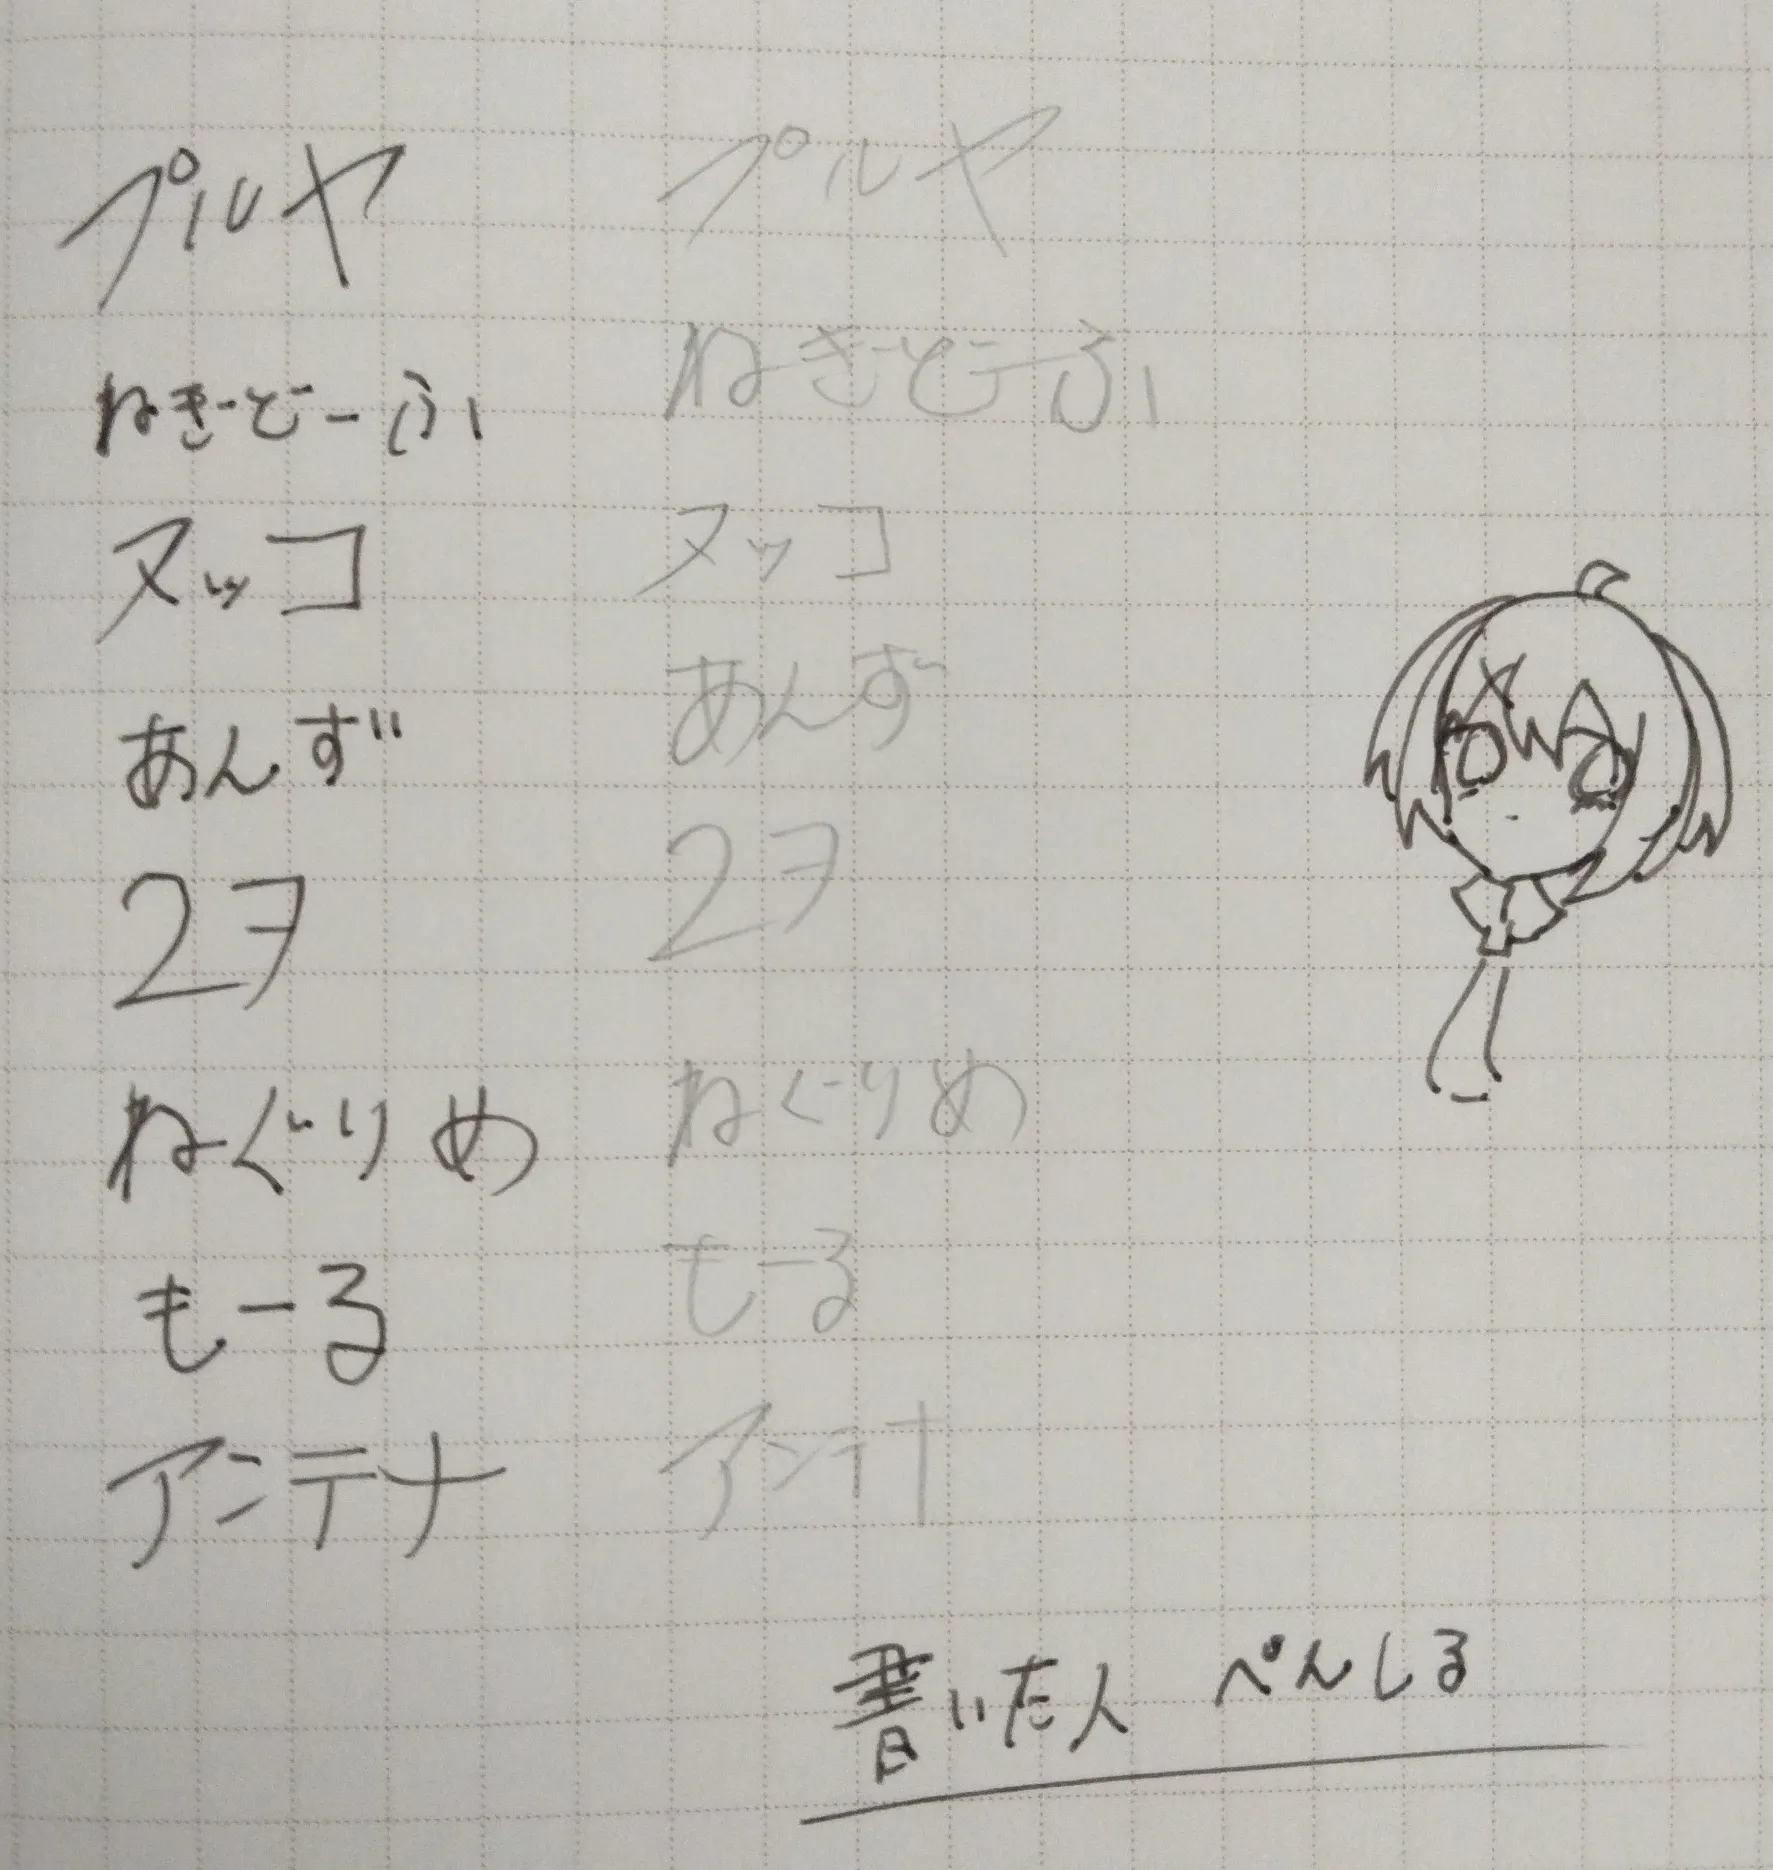 プルヤ プルヤ
ねぎどーふ ねぎどーふ
ヌッコ ヌッコ
あんず あんず
2ヲ 2ヲ
ねぐりめ ねぐりめ
もーる もーる
アンテナ アンテナ
書いた人 ぺんしる